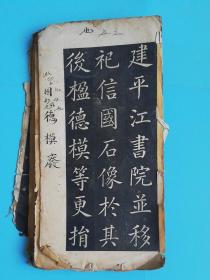 建平江書院並移
祀信國石像於其
後楹德模等更捐
德模